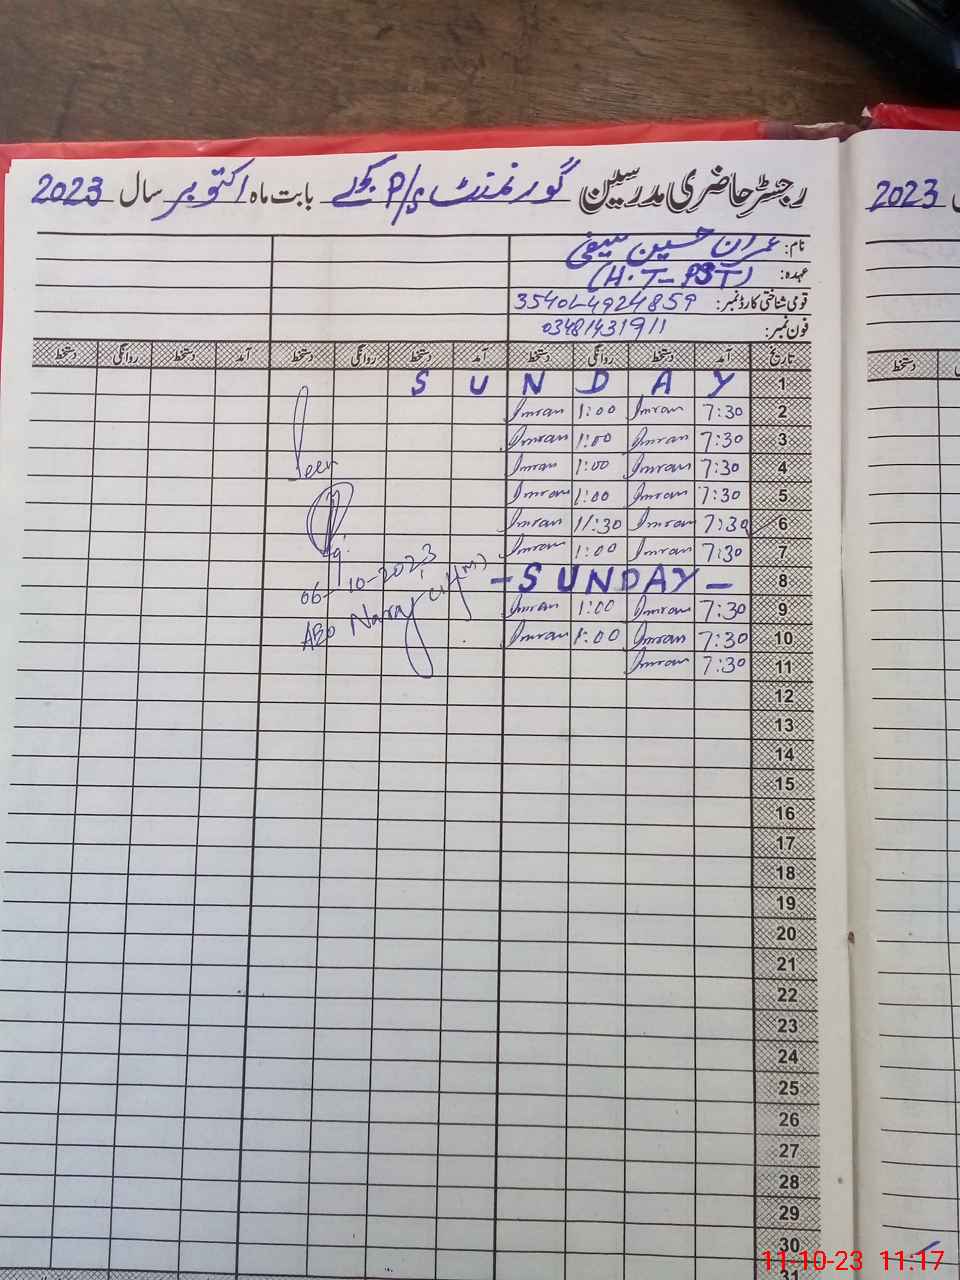 رجسٹر حاضری مدرسین گورنمنٹ P/S بابت ماہ اکتوبر سال 2023
2023
نام: عمران حسین سیفی
عہدہ: (H.T-PST)
قومی شناختی کارڈ نمبر: 35401-4924859
فون نمبر: 03481431911
تاریخ آمد دستخط روانگی دستخط آمد دستخط روانگی دستخط آمد دستخط روانگی دستخط
دستخط
1 SUNDAY
2 7:30 Imran 1:00 Imran
3 7:30 Imran 1:00 Imran
4 7:30 Imran 1:00 Imran
5 7:30 Imran 1:00 Imran
6 7:30 Imran 11:30 Imran
7 7:30 Imran 1:00 Imran
8 - SUNDAY -
9 7:30 Imran 1:00 Imran
10 7:30 Imran 1:00 Imran
11 7:30 Imran
Seen
06-10-2023
AEO
12
13
14
15
16
17
18
19
20
21
22
23
24
25
26
27
28
29
30
31
11-10-23 11:17